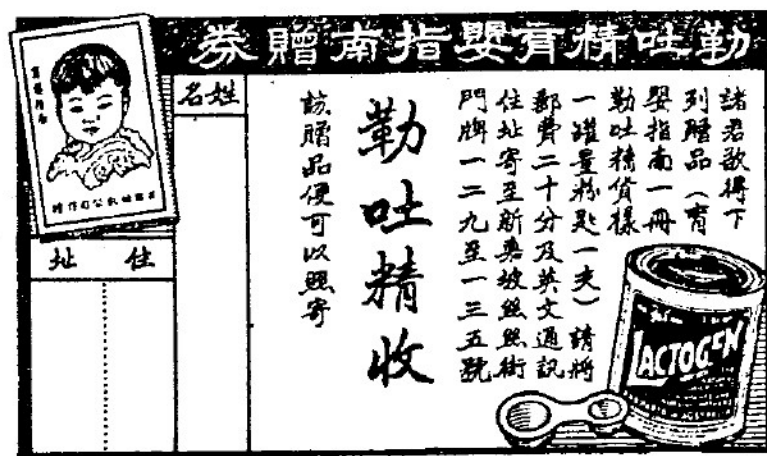 勒吐精育嬰指南贈券
諸君欲得下
列贈品（育
嬰指南一冊
勒吐精貨樣
一罐量粉匙一夫）請將
郵費二十分及英文通訊
住址寄至新嘉坡絲絲街
門牌一二九至一三五號
勒吐精收
該贈品便可以照寄
姓名
住址
LACTOGEN